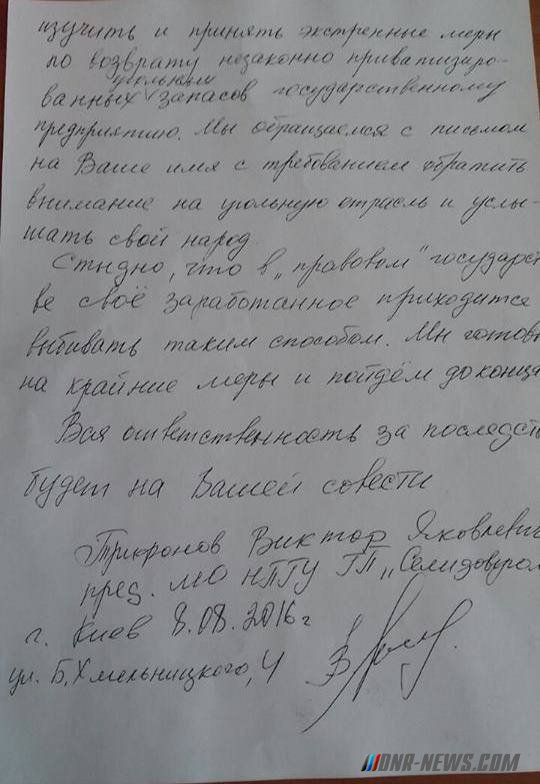 изучить и принять экстренные меры
по возврату незаконно приватизиро-
угольных
ванных запасов государственному
предприятию. Мы обращаемся с письмом
на Ваше имя с требованием обратить
внимание на угольную отрасль и услы-
шать свой народ.
Стыдно, что в "правовом" государст
ве своё заработанное приходится
выбивать таким способом. Мы готовы
на крайние меры и пойдём до конца
Вся ответственность за последст
будет на Вашей совести
Виктор Яковлевич
пред. МО НПГУ ГП "Селидовугол
г. Киев 8.08.2016г
ул. Б.Хмельницкого, 4
DNR-NEWS.COM